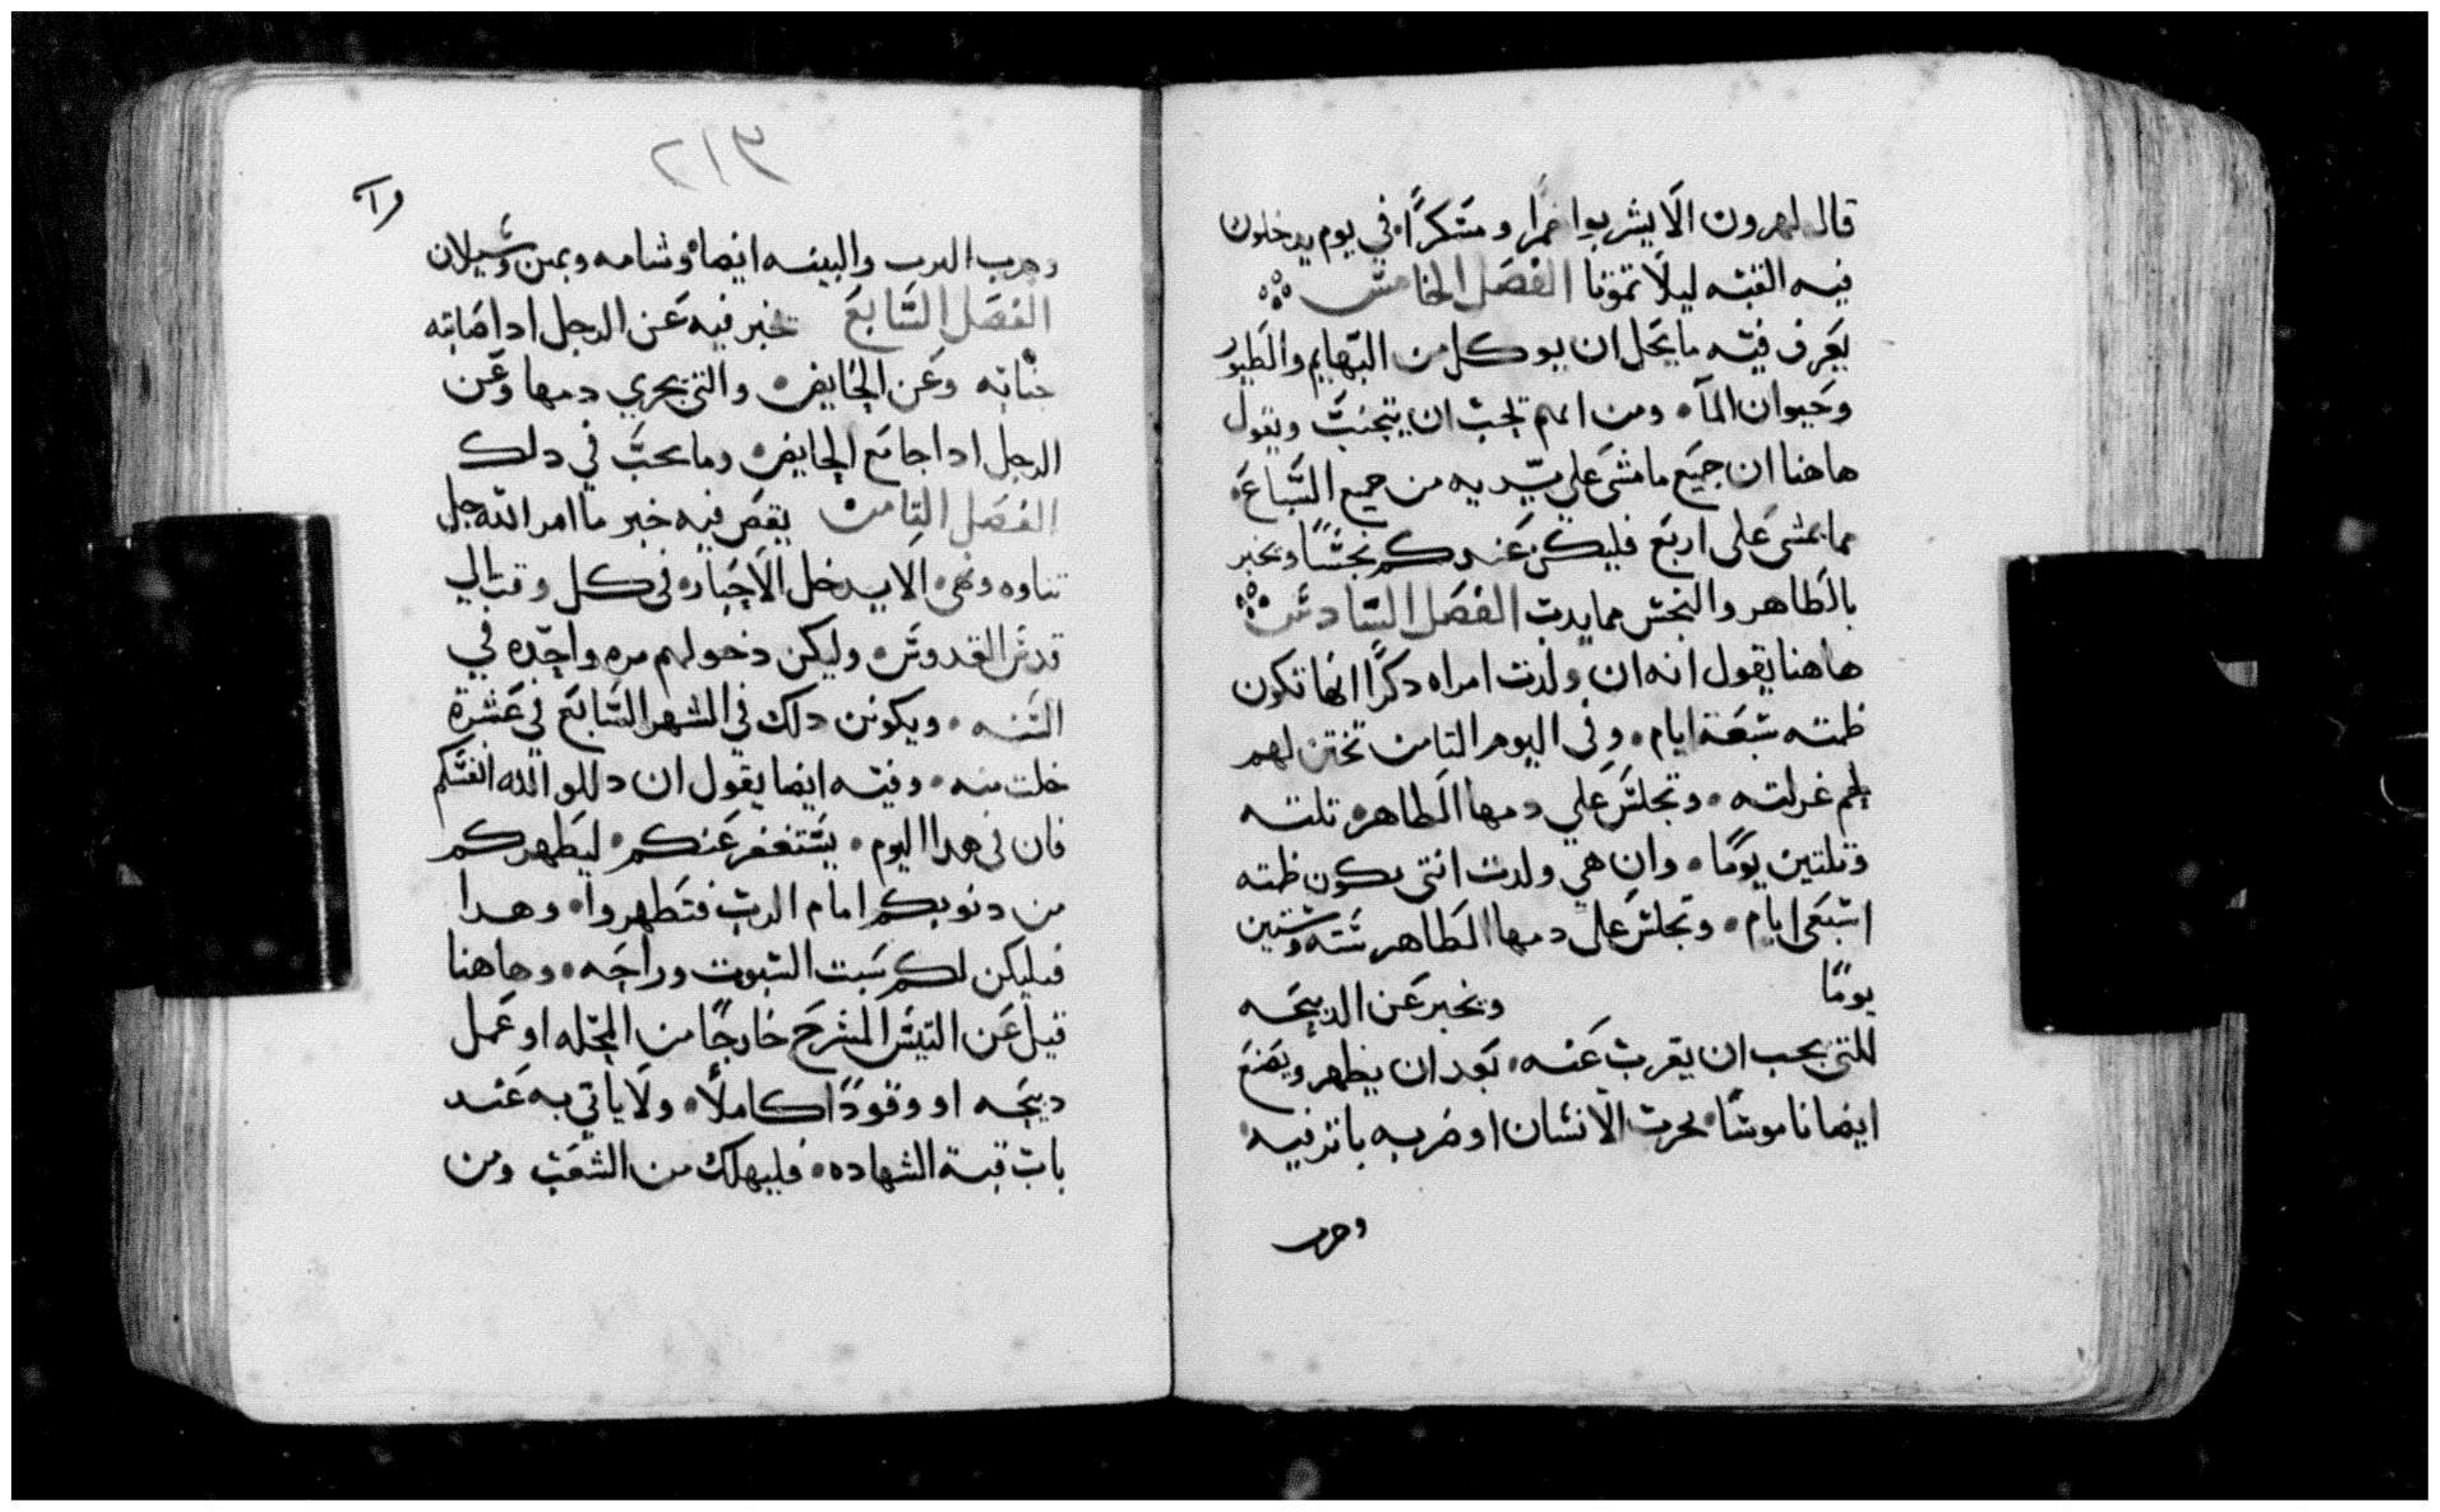 قال لهرون الا يشربوا خمرا ومسكرا في يوم يدخلون
فيه القبه ليلا تموتا الفصل الخامس
يعرف فيه ما يحل ان يوكل من البهايم والطيور
وحيوان الما ومن ايهم يجب ان يتجنب ويقول
هاهنا ان جميع ما مشى على يديه من جميع السباع
مما يمشى على اربع فليكن عندكم نجسا ويخبر
بالطاهر والنجس مما يدب الفصل السادس
هاهنا يقول انه ان ولدت امراه دكرا انها تكون
طمته سبعة ايام وفى اليوم التامن تختن لهم
لحم غرلته وتجلس على دمها الطاهر تلته
وتلتين يوما وان هي ولدت انتى يكون طمته
اسبعى ايام وتجلس على دمها الطاهر سته وستين
يوما ويخبر عن الدبيحه
للتى يجب ان يقرب عنه بعد ان يطهر ويضع
ايضا ناموسا بحرب الانسان او ضربه باتر فيه
وحرب
٢١٣
وحرب التوب والبيت ايضا وشامه وبمن وسيلان
الفصل السابع يخبر فيه عن الرجل ادا اصابته
جنابه وعن الحايض والتى يجري دمها وعن
الرجل ادا جامع الحايض وما يجب في دلك
الفصل التامن يقص فيه خبر ما امر الله جل
تناوه وهى الا يدخل الاحبار في كل وقت الي
قدس القدوس وليكن دخولهم مره واحده في
السنه ويكونن دلك في الشهر السابع في عشرة
خلت منه وفيه ايضا يقول ان دللوا لله انفسكم
فان فى هدا اليوم يستغفر عنكم ليطهركم
من دنوبكم امام الرب فتطهروا وهدا
فليكن لكم سبت السبوت وراحه وهاهنا
قيل عن التيس المسرح خارجا من المحله او عمل
دبيحه او وقودا كاملا ولا ياتي به عند
باب قبة الشهاده فليهلك من الشعب ومن